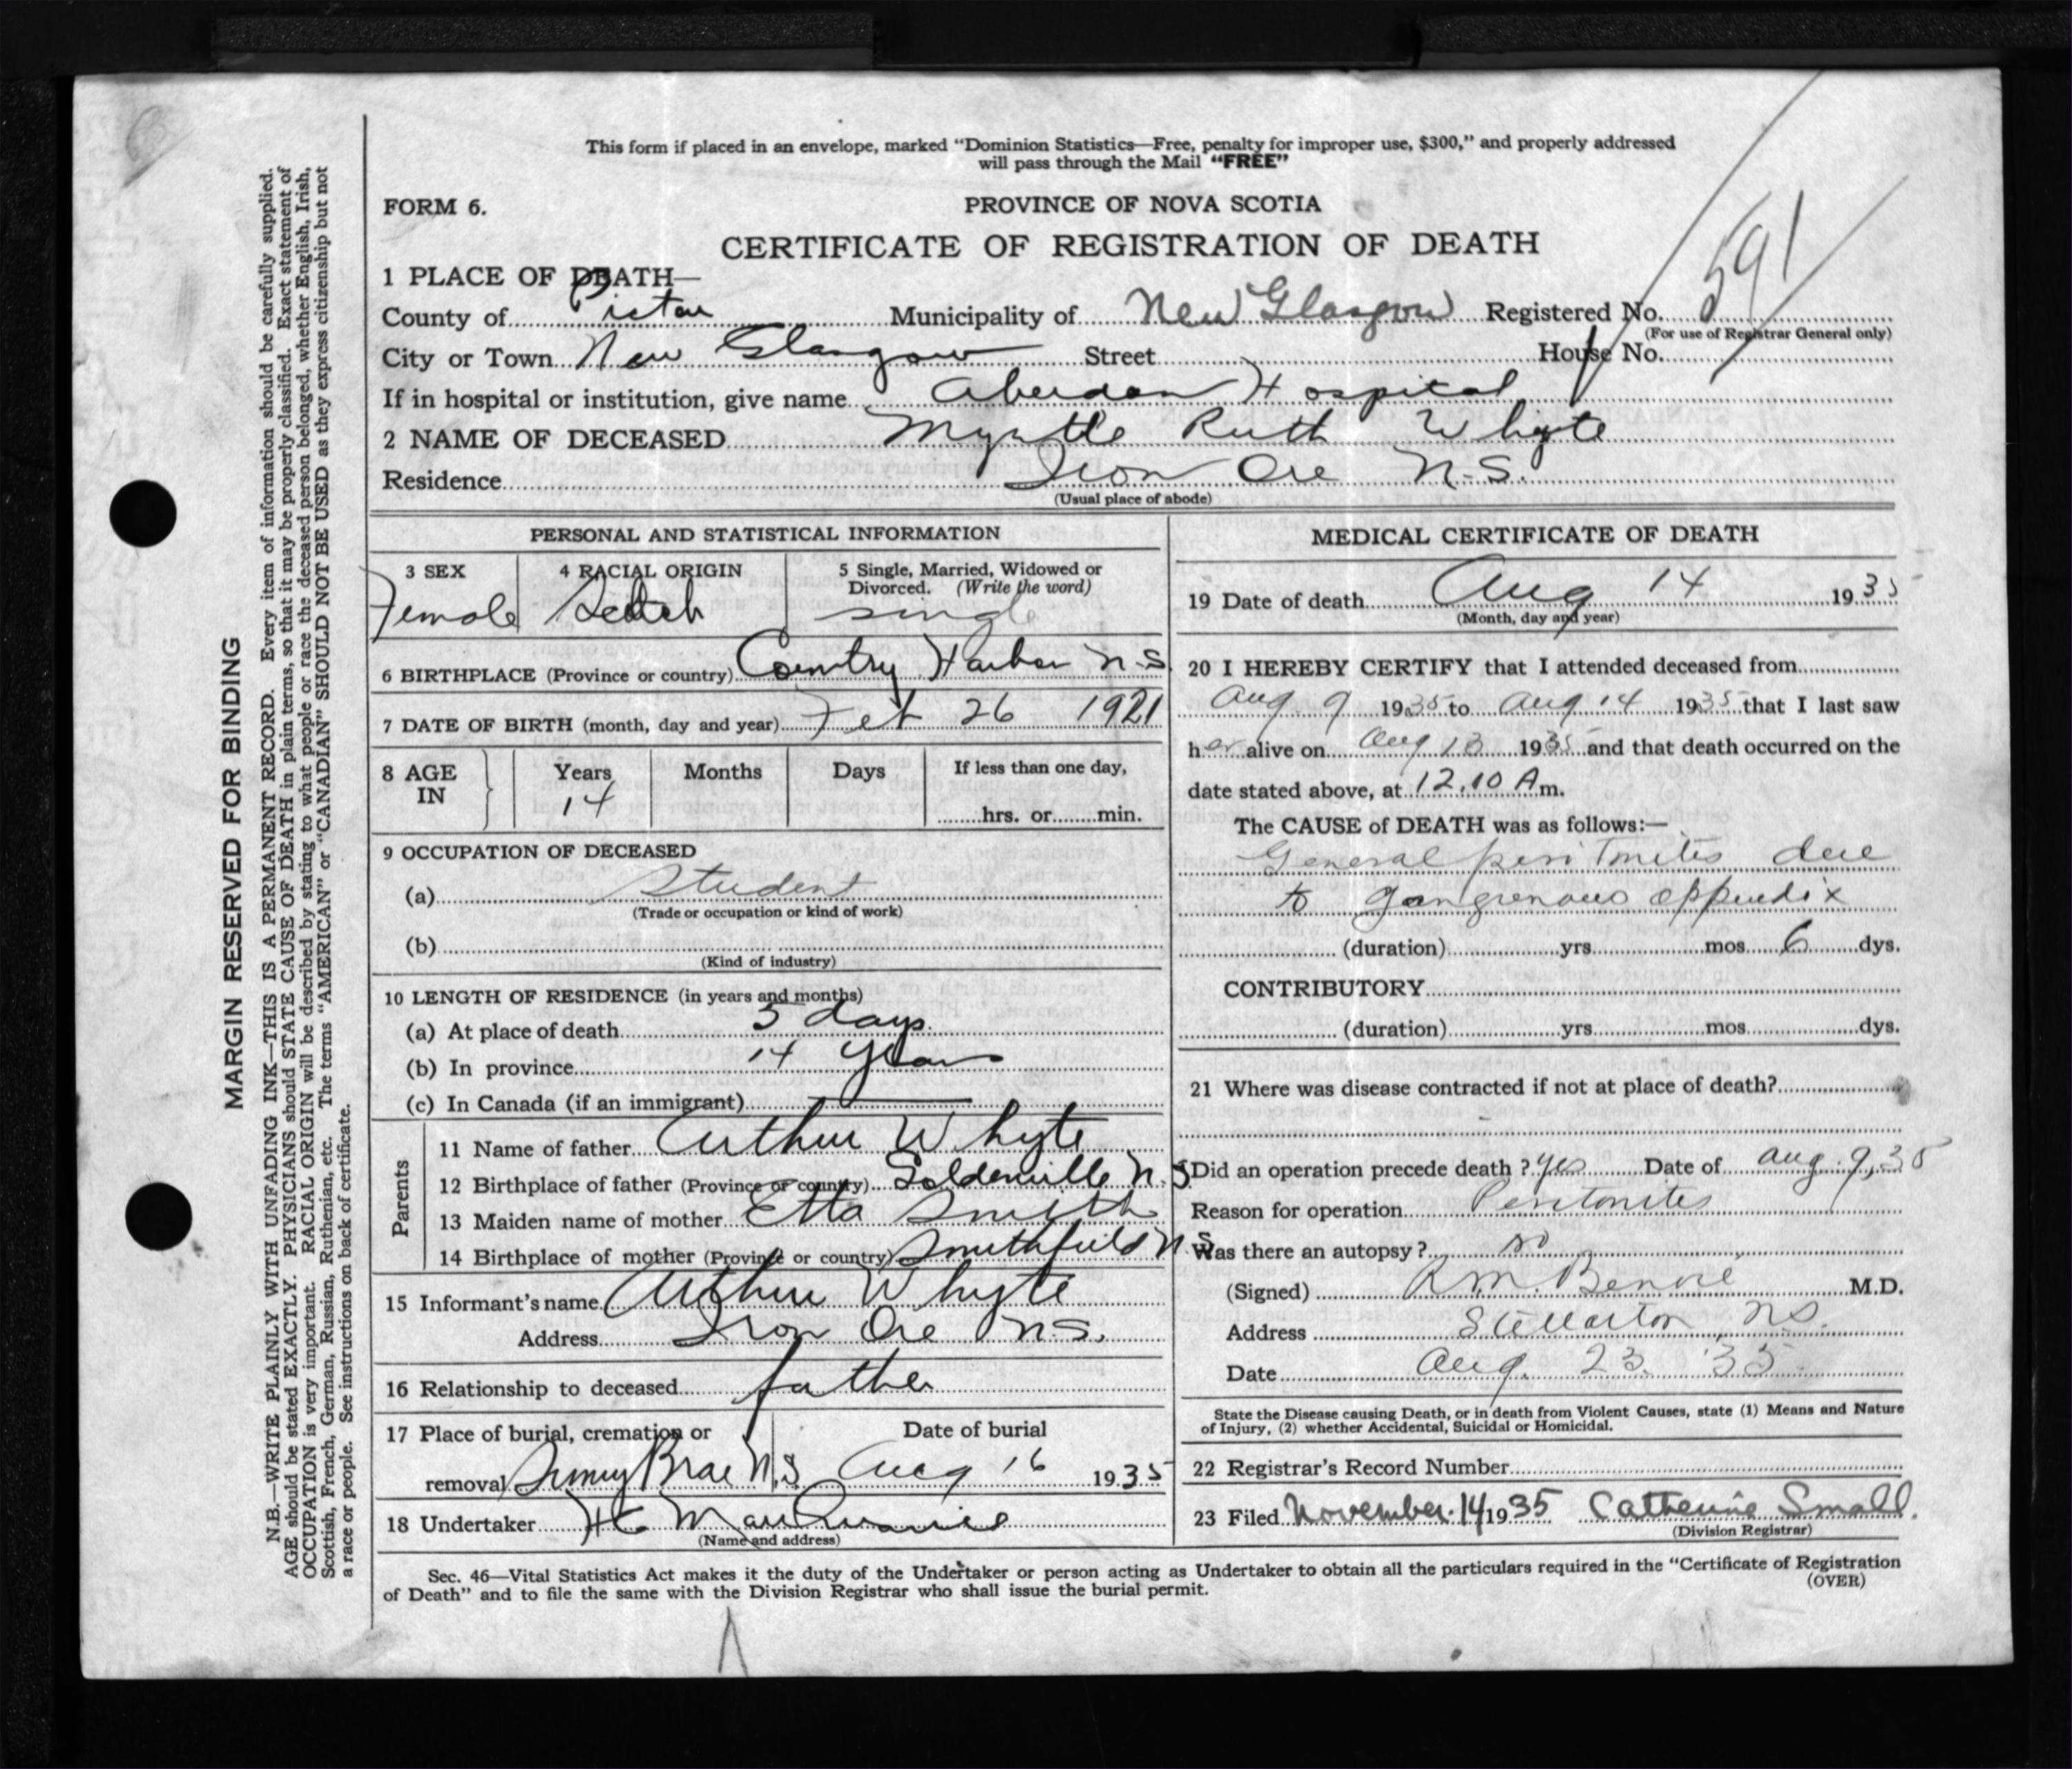 This form if placed in an envelope, marked “Dominion Statistics—Free, penalty for improper use, $300,” and properly addressed
will pass through the Mail “FREE”
FORM 6.
PROVINCE OF NOVA SCOTIA
CERTIFICATE OF REGISTRATION OF DEATH
1 PLACE OF DEATH—
County of Pictou Municipality of New Glasgow Registered No. 591
(For use of Registrar General only)
City or Town New Glasgow Street House No.
If in hospital or institution, give name Aberdeen Hospital
2 NAME OF DECEASED Myrtle Ruth Whyte
Residence Iron Ore N.S.
(Usual place of abode)
PERSONAL AND STATISTICAL INFORMATION
3 SEX 4 RACIAL ORIGIN 5 Single, Married, Widowed or
Divorced. (Write the word)
Female Scotch single
6 BIRTHPLACE (Province or country) Country Harbor N.S.
7 DATE OF BIRTH (month, day and year) Feb 26 1921
8 AGE IN Years Months Days If less than one day,
14 hrs. or min.
9 OCCUPATION OF DECEASED
(a) Student
(Trade or occupation or kind of work)
(b)
(Kind of industry)
10 LENGTH OF RESIDENCE (in years and months)
(a) At place of death 5 days
(b) In province 14 years
(c) In Canada (if an immigrant)
Parents
11 Name of father Arthur Whyte
12 Birthplace of father (Province or country) Goldenville N.S.
13 Maiden name of mother Etta Smith
14 Birthplace of mother (Province or country) Smithfield N.S.
15 Informant's name Arthur Whyte
Address Iron Ore N.S.
16 Relationship to deceased father
17 Place of burial, cremation or Date of burial
removal Sunny Brae N.S. Aug 16 1935
18 Undertaker
(Name and address)
MEDICAL CERTIFICATE OF DEATH
19 Date of death Aug 14 1935
(Month, day and year)
20 I HEREBY CERTIFY that I attended deceased from
Aug 9 1935 to Aug 14 1935 that I last saw
her alive on Aug 13 1935 and that death occurred on the
date stated above, at 12.10 A m.
The CAUSE of DEATH was as follows:—
General peritonites due
to gangrenous appendix
(duration) yrs mos 6 dys.
CONTRIBUTORY
(duration) yrs mos dys.
21 Where was disease contracted if not at place of death?
Did an operation precede death? yes Date of Aug. 9, 35
Reason for operation Peritonites
Was there an autopsy? no
(Signed) R.M. Benvie M.D.
Address Stellarton N.S.
Date Aug. 23 '35
State the Disease causing Death, or in death from Violent Causes, state (1) Means and Nature
of Injury, (2) whether Accidental, Suicidal or Homicidal.
22 Registrar's Record Number
23 Filed November 14 1935 Catherine Small.
(Division Registrar)
Sec. 46—Vital Statistics Act makes it the duty of the Undertaker or person acting as Undertaker to obtain all the particulars required in the “Certificate of Registration
of Death” and to file the same with the Division Registrar who shall issue the burial permit.
(OVER)
MARGIN RESERVED FOR BINDING
N.B.—WRITE PLAINLY WITH UNFADING INK—THIS IS A PERMANENT RECORD. Every item of information should be carefully supplied.
AGE should be stated EXACTLY. PHYSICIANS should STATE CAUSE OF DEATH in plain terms, so that it may be properly classified. Exact statement of
OCCUPATION is very important. RACIAL ORIGIN will be described by stating to what people or race the deceased person belonged, whether English, Irish,
Scottish, French, German, Russian, Ruthenian, etc. The terms “AMERICAN” or “CANADIAN” SHOULD NOT BE USED as they express citizenship but not
a race or people. See instructions on back of certificate.